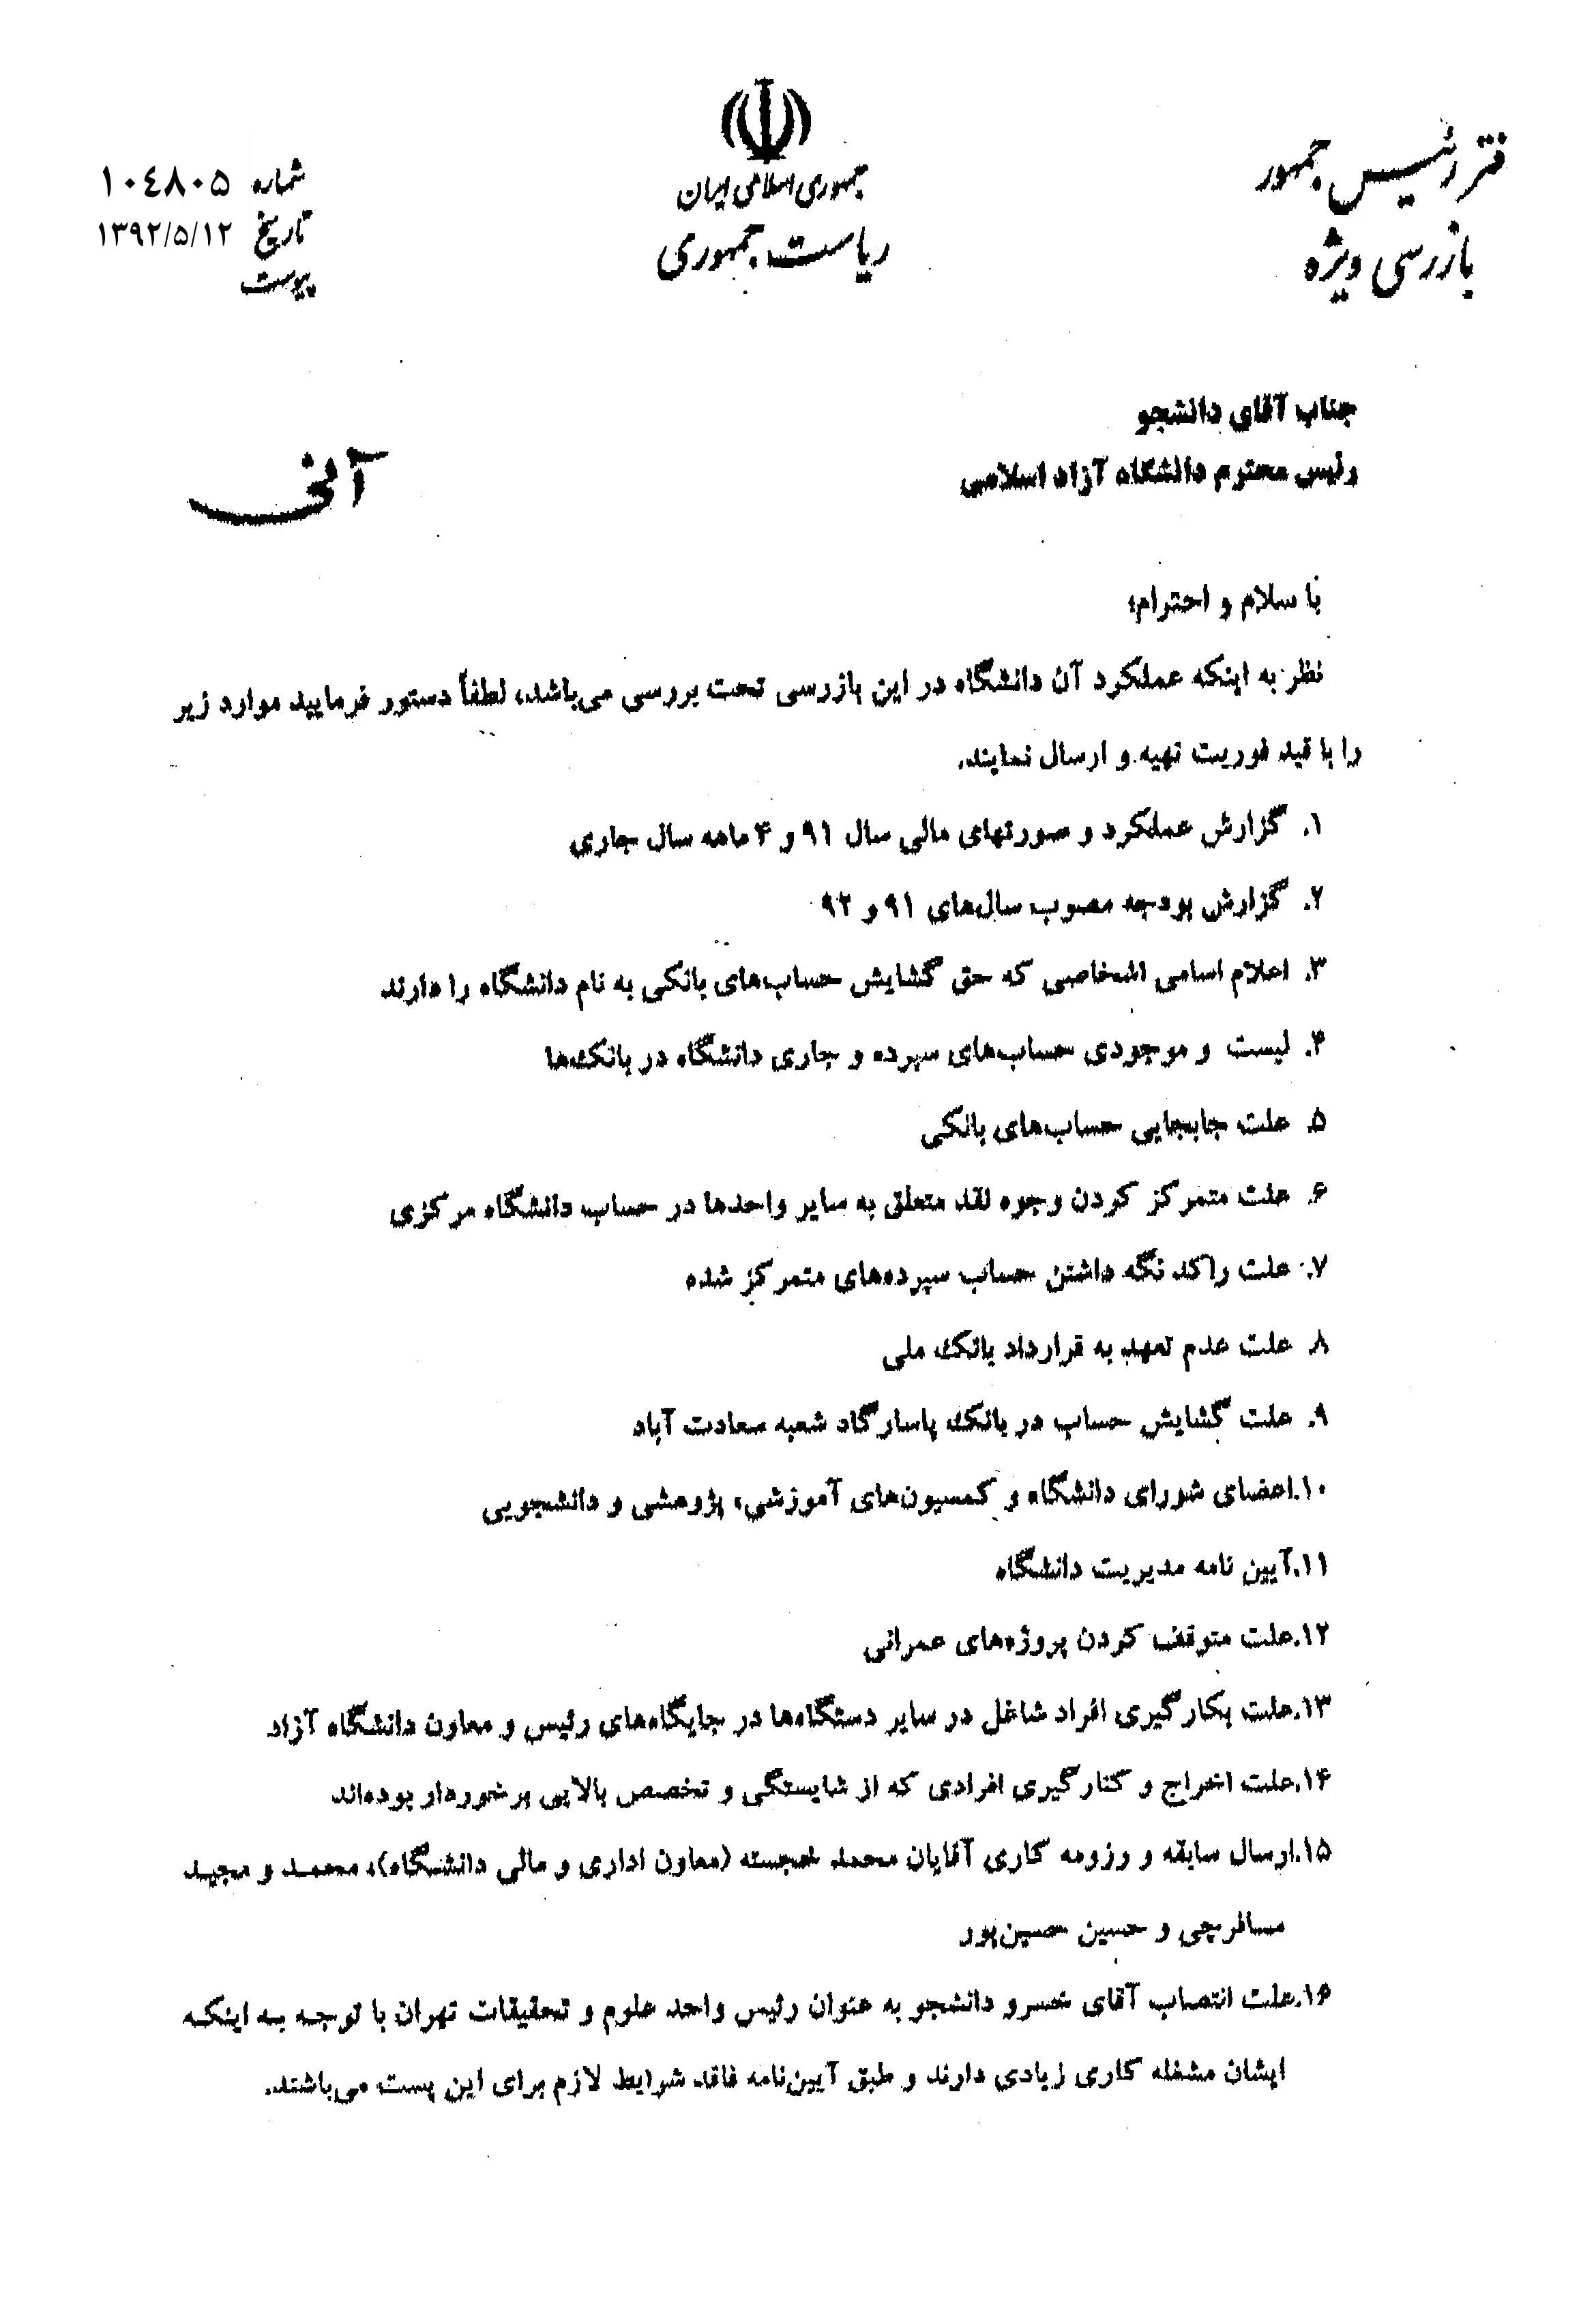 جمهوری اسلامی ایران
ریاست جمهوری
فتر رئیس جمهور
بازرسی ویژه
شماره ۱۰٤۸۰۵
تاریخ ۱۳۹۲/۵/۱۲
پیوست
جناب آقای دانشجو
رئیس محترم دانشگاه آزاد اسلامی
آنی
با سلام و احترام؛
نظر به اینکه عملکرد آن دانشگاه در این بازرسی تحت بررسی می‌باشد، لطفاً دستور فرمایید موارد زیر
را با قید فوریت تهیه و ارسال نمایند.
۱. گزارش عملکرد و صورتهای مالی سال ۹۱ و ۴ ماهه سال جاری
۲. گزارش بودجه مصوب سال‌های ۹۱ و ۹۲
۳. اعلام اسامی اشخاصی که حق گشایش حساب‌های بانکی به نام دانشگاه را دارند
۴. لیست و موجودی حساب‌های سپرده و جاری دانشگاه در بانک‌ها
۵. علت جابجایی حساب‌های بانکی
۶. علت متمرکز کردن وجوه نقد متعلق به سایر واحدها در حساب دانشگاه مرکزی
۷. علت راکد نگه داشتن حساب سپرده‌های متمرکز شده
۸. علت عدم تعهد به قرارداد بانک ملی
۹. علت گشایش حساب در بانک پاسارگاد شعبه سعادت آباد
۱۰.اعضای شورای دانشگاه و کمسیون‌های آموزشی، پژوهشی و دانشجویی
۱۱.آیین نامه مدیریت دانشگاه
۱۲.علت متوقف کردن پروژه‌های عمرانی
۱۳.علت بکارگیری افراد شاغل در سایر دستگاه‌ها در جایگاه‌های رئیس و معاون دانشگاه آزاد
۱۴.علت اخراج و کنارگیری افرادی که از شایستگی و تخصص بالایی برخوردار بوده‌اند
۱۵.ارسال سابقه و رزومه کاری آقایان محمد خجسته (معاون اداری و مالی دانشگاه)، محمد و مجید
مسافرچی و حسین حسین‌پور
۱۶.علت انتصاب آقای خسرو دانشجو به عنوان رئیس واحد علوم و تحقیقات تهران با توجه به اینکه
ایشان مشغله کاری زیادی دارند و طبق آیین‌نامه فاقد شرایط لازم برای این پست می‌باشند.